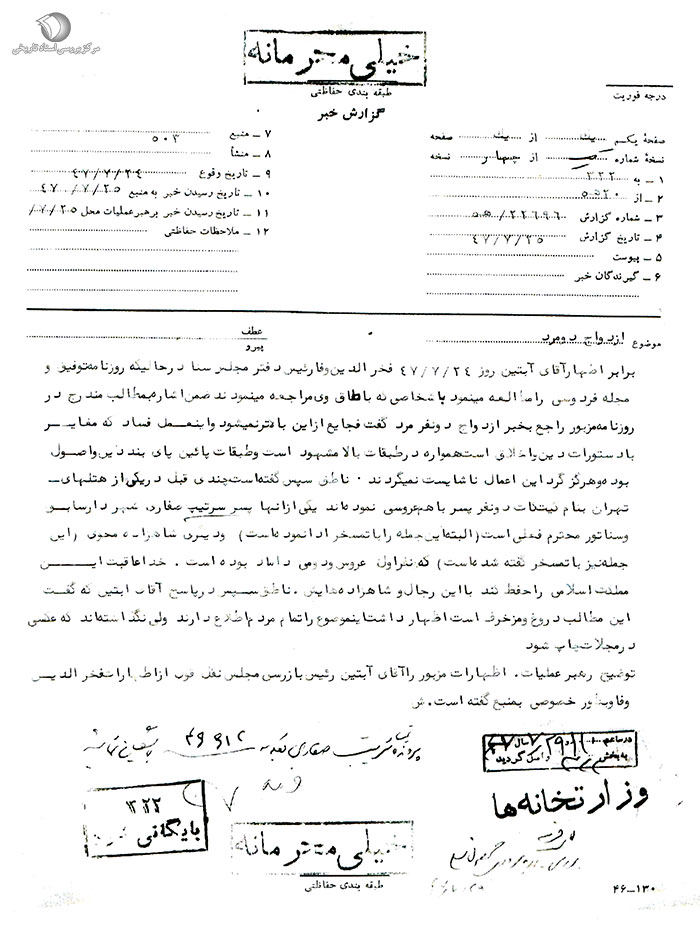 مرکز بررسی اسناد تاریخی
خیلی محرمانه
طبقه بندی حفاظتی
گزارش خبر
درجه فوریت
صفحهٔ یکم یک از یک صفحه
نسخهٔ شماره از چهار نسخه
۱ ـ به ۳۲۲
۲ ـ از ۵۵۲۰
۳ ـ شماره گزارش ۵۵/۲۲۶۹۶
۴ ـ تاریخ گزارش ۴۷/۷/۲۵
۵ ـ پیوست
۶ ـ گیرندگان خبر
۷ ـ منبع ۵۰۳
۸ ـ منشأ
۹ ـ تاریخ وقوع ۴۷/۷/۲۴
۱۰ ـ تاریخ رسیدن خبر به منبع ۴۷/۷/۲۵
۱۱ ـ تاریخ رسیدن خبر برهبر عملیات محل ۷/۲۵/
۱۲ ـ ملاحظات حفاظتی
موضوع ازدواج دومرد
عطف
پیرو
برابر اظهارآقای آبتین روز ۴۷/۷/۲۴ فخرالدین وفارئیس دفتر مجلس سنا درحالیکه روزنامه توفیق و
مجله فردوسی رامطالعه مینمود باشخاصی که باطاق وی مراجعه مینمودند ضمن اشاره بمطالب مندرج در
روزنامه مزبور راجع بخبر ازدواج دونفر مرد گفت فجایع ازاین بالاترنمیشود واینعمل فساد که مغایر
بادستورات دین واخلاق است همواره درطبقات بالا مشهود است وطبقات پائین پای بند دین واصول
بوده وهرگز گرد این اعمال ناشایست نمیگردند . ناطق سپس گفته است چندی قبل دریکی از هتلهای
تهران بنام دونفر پسر باهم عروسی نموده اند یکی ازانها پسر سرتیپ صفاری شهردارسابق
وسناتور محترم فعلی است (البته این جمله را باتمسخر ادا نموده است) ودیگری شاهزاده محوی (این
جمله نیز باتمسخر گفته شده است) که نفر اول عروس ودومی داماد بوده است . خدا عاقبت این
مملکت اسلامی را حفظ کند بااین رجال و شاهزاده هایش . ناطق سپس درپاسخ آقای ابتین که گفت
این مطالب دروغ ومزخرف است اظهارداشت اینموضوع را تمام مردم اطلاع دارند ولی نگذاشته اند که عکسی
درمجلات چاپ شود
توضیح رهبر عملیات . اظهارات مزبور را آقای آبتین رئیس بازرسی مجلس نقل قول ازاظهارات فخرالدین
وفا وبطور خصوصی بمنبع گفته است . ش
پرونده صفاری
وزارتخانه ها
۳۲۲
بایگانی شود
خیلی محرمانه
طبقه بندی حفاظتی
۴۶ـ۱۳۰